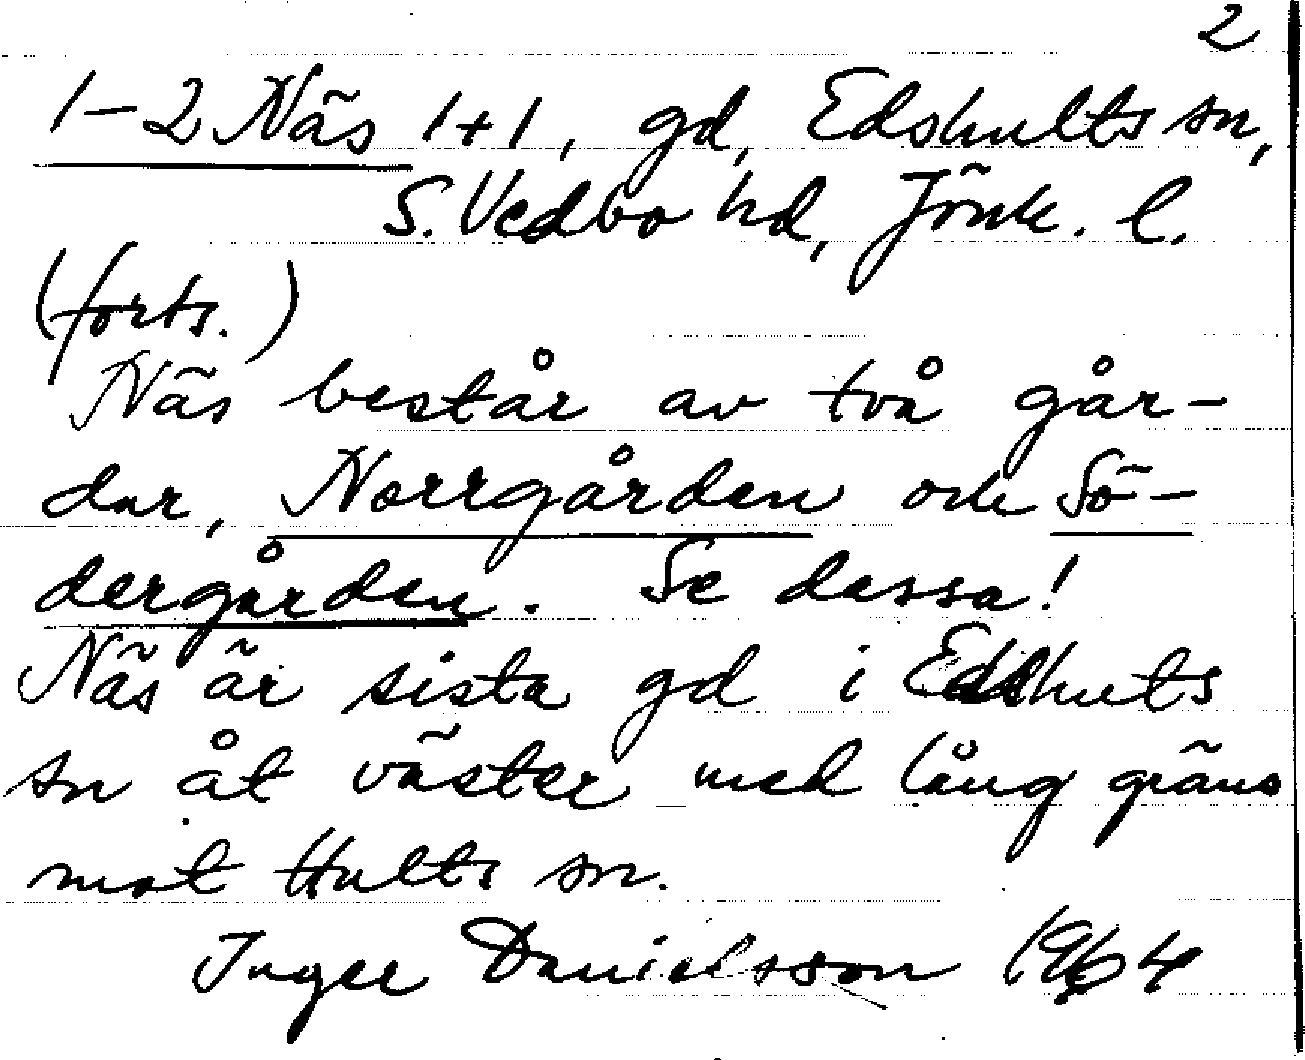 2
1-2 Näs 1+1, gd, Edshults sn,
S. Vedbo hd, Jönk. l.
(forts.)
Näs består av två går-
dar, Norrgården och Sö-
dergården. Se dessa!
Näs är sista gd i Edshuts
sn åt väster med lång gräns
mot Hults sn.
Inger Danielsson 1964